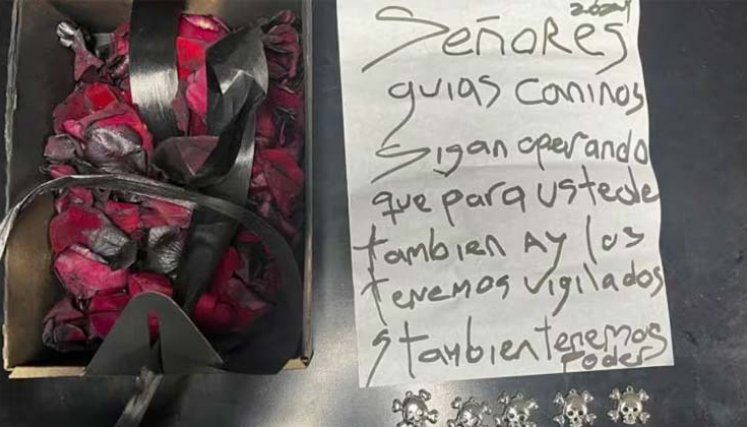 2024
SEÑORES
guias CAMINOS
Sigan operando
que para ustede
tambien Ay los
tenemos vigilados
y tambien tenemos
Poder